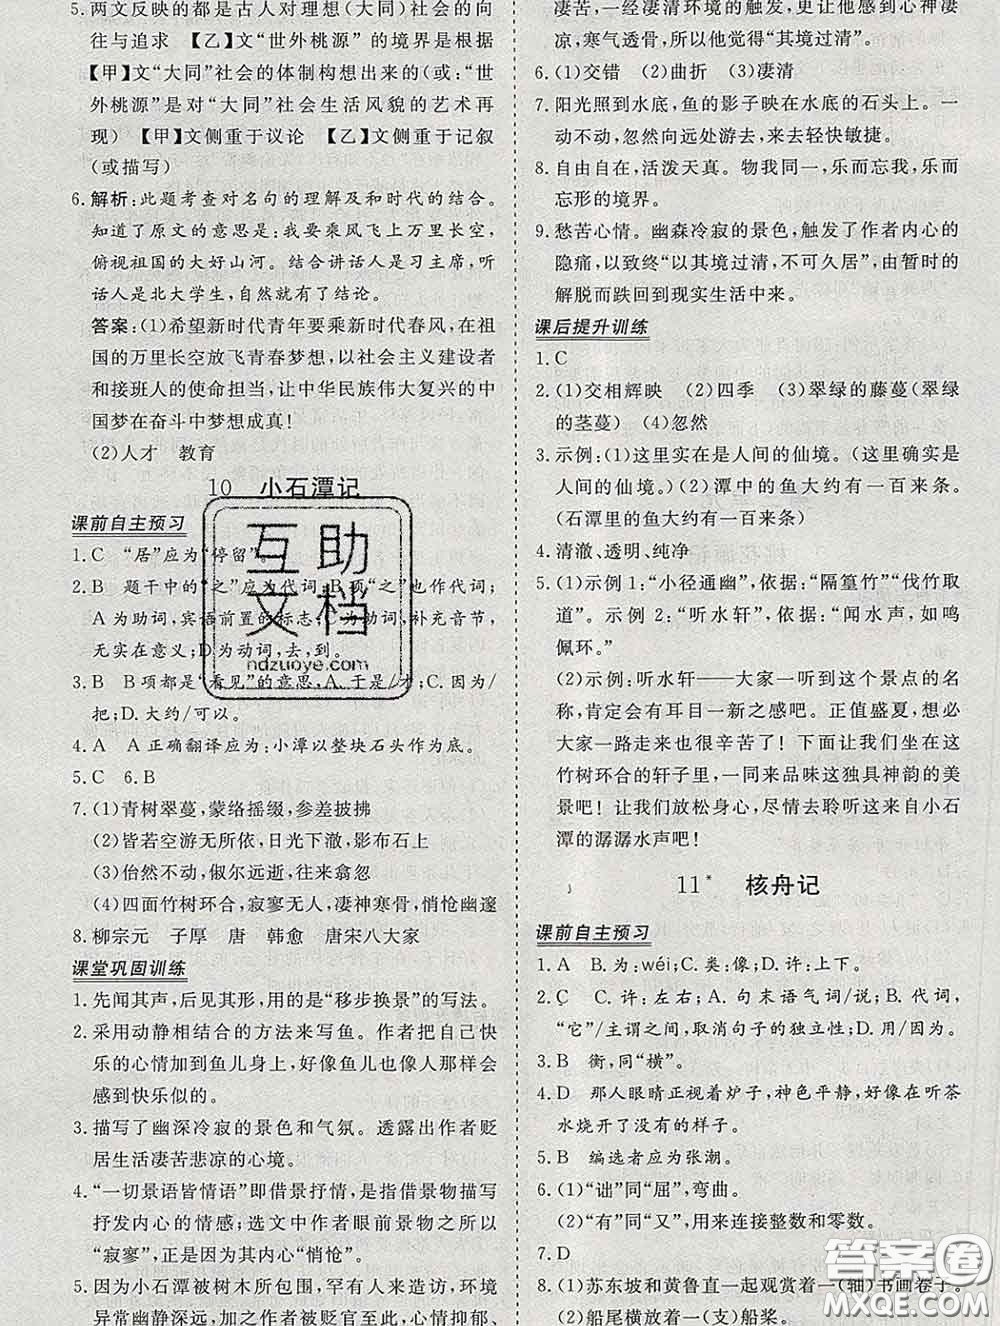 5. 两文反映的都是古人对理想(大同)社会的向
往与追求 【乙】文“世外桃源”的境界是根据
【甲】文“大同”社会的体制构想出来的(或:“世
外桃源”是对“大同”社会生活风貌的艺术再
现) 【甲】文侧重于议论 【乙】文侧重于记叙
(或描写)
6. 解析:此题考查对名句的理解及和时代的结合。
知道了原文的意思是:我要乘风飞上万里长空,
俯视祖国的大好山河。结合讲话人是习主席,听
话人是北大学生,自然就有了结论。
答案:(1)希望新时代青年要乘新时代春风,在祖
国的万里长空放飞青春梦想,以社会主义建设者
和接班人的使命担当,让中华民族伟大复兴的中
国梦在奋斗中梦想成真!
(2)人才 教育
10 小石潭记
课前自主预习
1. C “居”应为“停留”。
2. B 题干中的“之”应为代词;B项“之”也作代词;
A为助词,宾语前置的标志;C为助词,补充音节,
无实在意义;D为动词,去,到。
3. B B项都是“看见”的意思,A.于是/才;C.因为/
把;D.大约/可以。
4. A A正确翻译应为:小潭以整块石头作为底。
5. C 6. B
7. (1)青树翠蔓,蒙络摇缀,参差披拂
(2)皆若空游无所依,日光下澈,影布石上
(3)佁然不动,俶尔远逝,往来翕忽
(4)四面竹树环合,寂寥无人,凄神寒骨,悄怆幽邃
8. 柳宗元 子厚 唐 韩愈 唐宋八大家
课堂巩固训练
1. 先闻其声,后见其形,用的是“移步换景”的写法。
2. 采用动静相结合的方法来写鱼。作者把自己快
乐的心情加到鱼儿身上,好像鱼儿也像人那样会
感到快乐似的。
3. 描写了幽深冷寂的景色和气氛。透露出作者贬
居生活凄苦悲凉的心境。
4. “一切景语皆情语”即借景抒情,是借景物描写
抒发内心的情感;选文中作者眼前景物之所以
“寂寥”,正是因为其内心“悄怆”。
5. 因为小石潭被树木所包围,罕有人来造访,环境
异常幽静深远,加之作者被贬官至此,心情抑郁、
凄苦,一经凄清环境的触发,更让他感到心神凄
凉,寒气透骨,所以他觉得“其境过清”。
6. (1)交错 (2)曲折 (3)凄清
7. 阳光照到水底,鱼的影子映在水底的石头上。一
动不动,忽然向远处游去,来去轻快敏捷。
8. 自由自在,活泼天真。物我同一,乐而忘忧,乐而
忘形的境界。
9. 愁苦心情。幽森冷寂的景色,触发了作者内心的
隐痛,以致终“以其境过清,不可久居”,由暂时的
解脱而跌回到现实生活中来。
课后提升训练
1. C
2. (1)交相辉映 (2)四季 (3)翠绿的藤蔓(翠绿
的茎蔓) (4)忽然
3. 示例:(1)这里实在是人间的仙境。(这里确实是
人间的仙境。)(2)潭中的鱼大约有一百来条。
(石潭里的鱼大约有一百来条)
4. 清澈、透明、纯净
5. (1)示例1:“小径通幽”,依据:“隔篁竹”“伐竹取
道”。示例2:“听水轩”,依据:“闻水声,如鸣
佩环。”
(2)示例:听水轩——大家一听到这个景点的名
称,肯定会有耳目一新之感吧。正值盛夏,想必
大家一路走来也很辛苦了!下面让我们坐在这
竹树环合的轩子里,一同来品味这独具神韵的美
景吧!让我们放松身心,尽情去聆听这来自小石
潭的潺潺水声吧!
11* 核舟记
课前自主预习
1. A B.为:wéi;C.类:像;D.许:上下。
2. C C.许:左右;A.句末语气词/说;B.代词,
“它”/主谓之间,取消句子的独立性;D.用/因为。
3. B 衡,同“横”。
4. D 那人眼睛正视着炉子,神色平静,好像在听茶
水烧开了没有的样子。
5. B 编选者应为张潮。
6. (1)“诎”同“屈”,弯曲。
(2)“有”同“又”,用来连接整数和零数。
7. D
8. (1)苏东坡和黄鲁直一起观赏着一(轴)书画卷子。
(2)船尾横放着一(支)船桨。
互助
文档
ndzuoye.com
答案圈
MXQE.COM